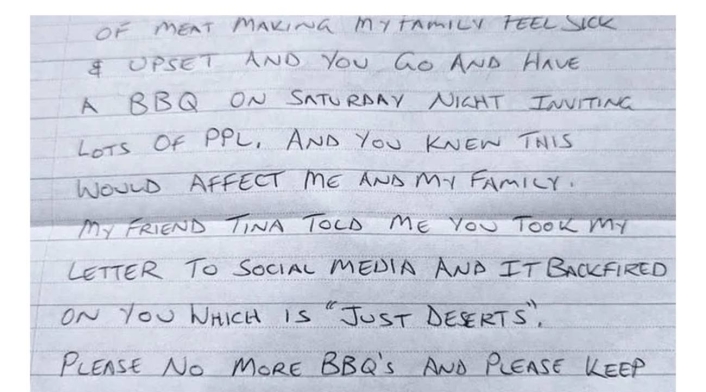 OF MEAT MAKING MY FAMILY FEEL SICK
& UPSET AND YOU GO AND HAVE
A BBQ ON SATURDAY NIGHT INVITING
LOTS OF PPL, AND YOU KNEW THIS
WOULD AFFECT ME AND MY FAMILY.
MY FRIEND TINA TOLD ME YOU TOOK MY
LETTER TO SOCIAL MEDIA AND IT BACKFIRED
ON YOU WHICH IS "JUST DESERTS".
PLEASE NO MORE BBQ'S AND PLEASE KEEP